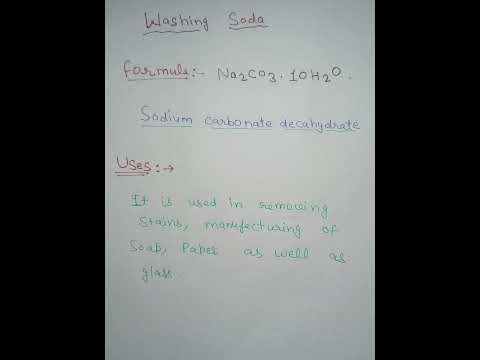 Washing Soda
formula:- Na2CO3 . 10H2O .
Sodium carbonate decahydrate
Uses:→
It is used in removing
stains, manufecturing of
Soap, Paper as well as
glass.